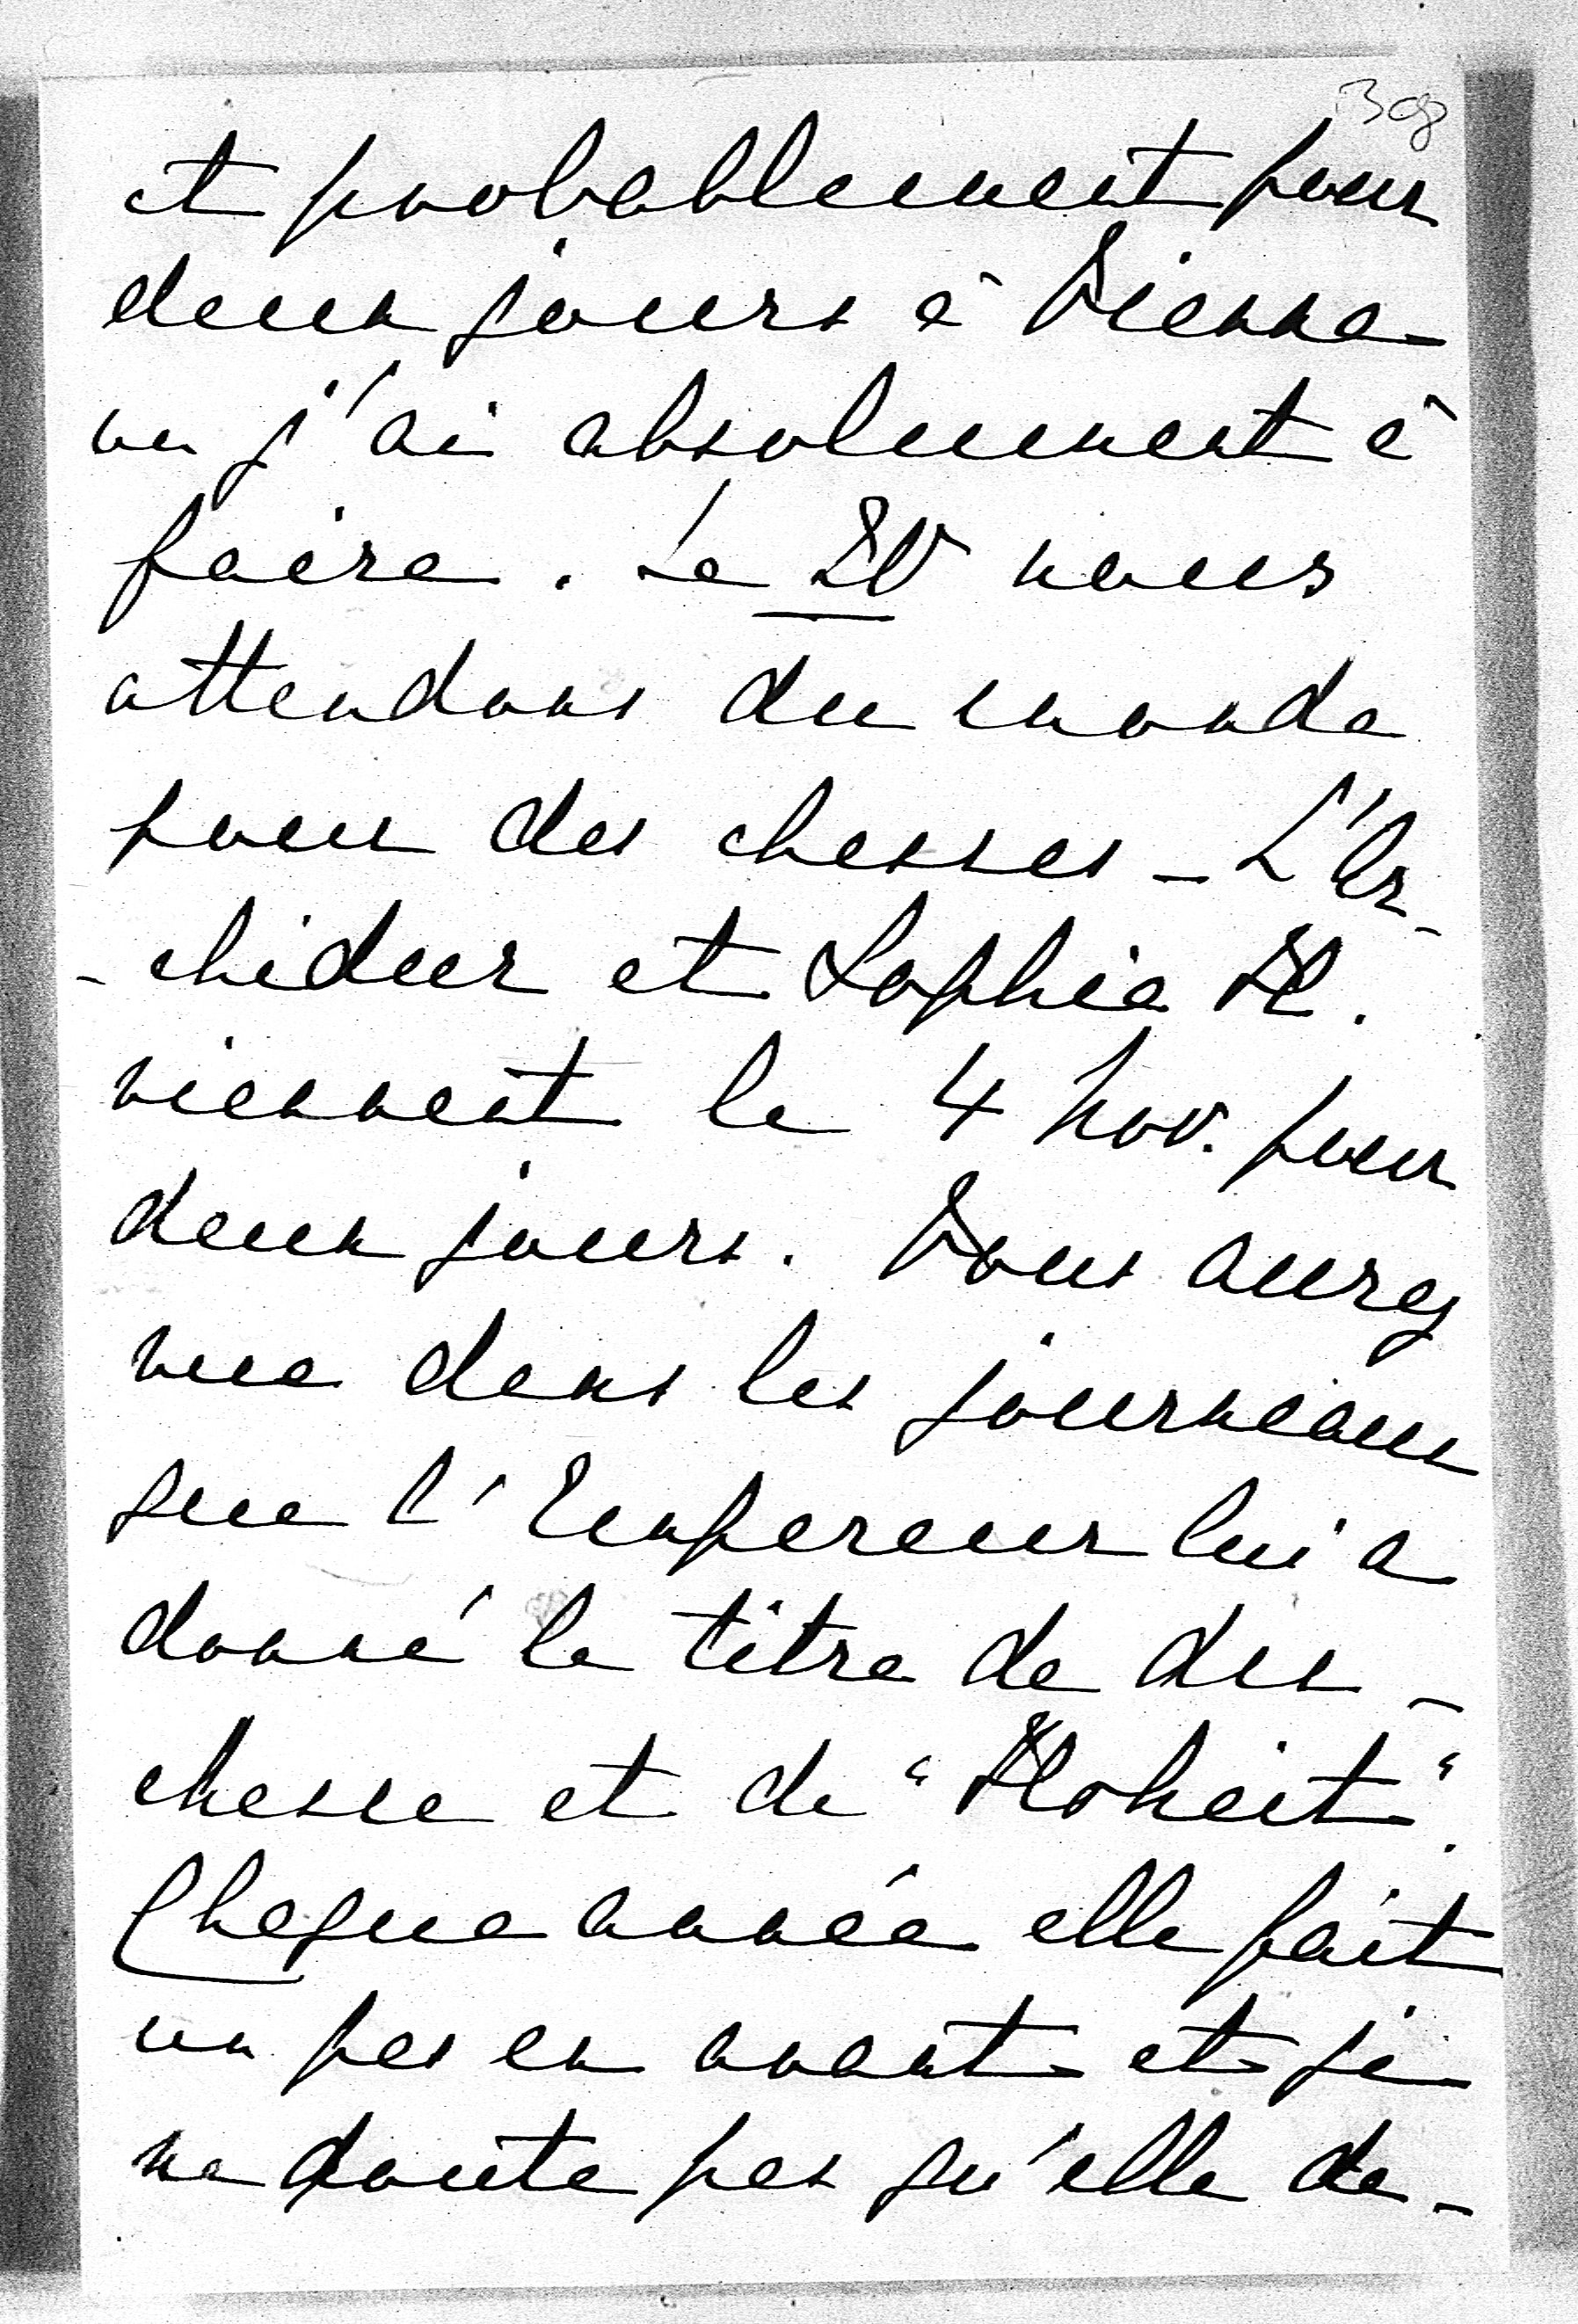 308
et probablement pour
deux jours à Vienne
où j'ai absolument à
faire. Le 20 nous
attendons du monde
pour des chasses - L'Ar-
-chiduc et Sophie H.
viennent le 4 Nov. pour
deux jours. Vous aurez
vue dans les journeaux
que l'Empereur lui a
donné le titre de du-
chesse et de "Hoheit".
Chaque année elle fait
un pas en avant et je
ne doute pas qu'elle de-